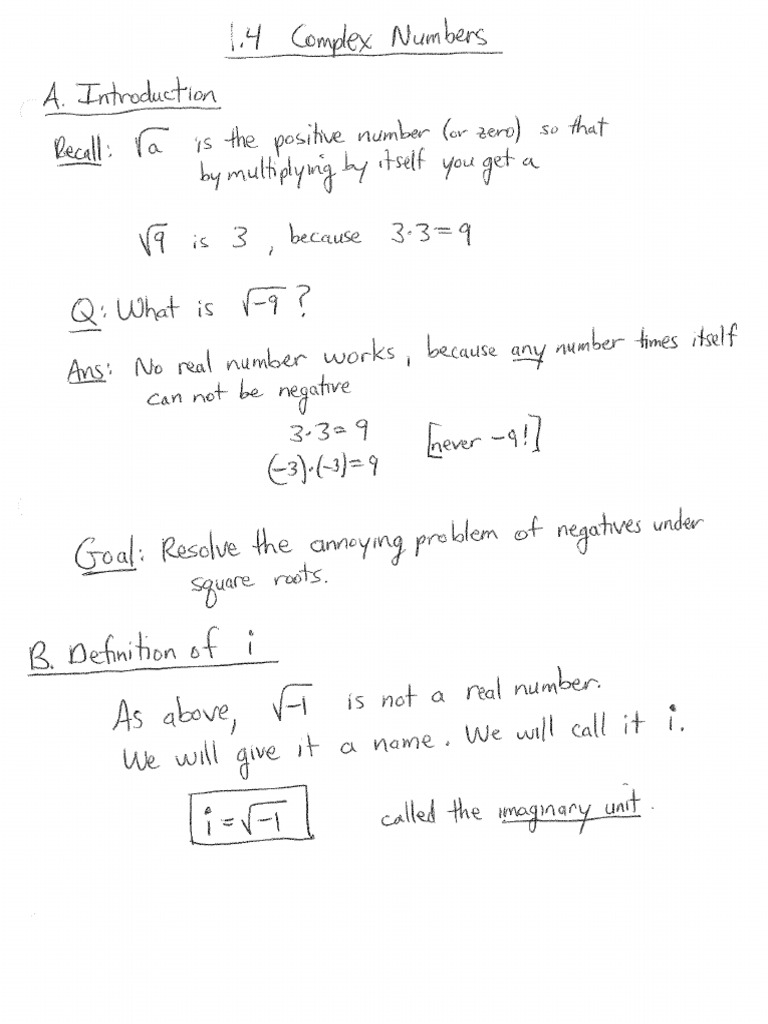 1.4 Complex Numbers
A. Introduction
Recall: √a is the positive number (or zero) so that
by multiplying by itself you get a
√9 is 3, because 3·3=9
Q: What is √-9?
Ans: No real number works, because any number times itself
can not be negative
3·3=9 [never -9!]
(-3)·(-3)=9
Goal: Resolve the annoying problem of negatives under
square roots.
B. Definition of i
As above, √-1 is not a real number.
We will give it a name. We will call it i.
i=√-1 called the imaginary unit.